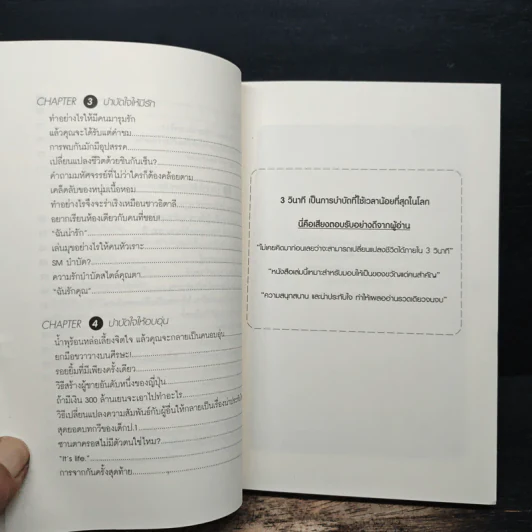 CHAPTER 3 บำบัดใจให้มีรัก
ทำอย่างไรให้มีคนมารุมรัก
แล้วคุณจะได้รับแต่คำชม
การพบกันมักมีอุปสรรค
เปลี่ยนแปลงชีวิตด้วยชินกันเซ็น?
คำถามมหัศจรรย์ที่ไม่ว่าใครก็ต้องคล้อยตาม
เคล็ดลับของหนุ่มเนื้อหอม
ทำอย่างไรจึงจะร่าเริงเหมือนชาวอิตาลี
อยากเรียนห้องเดียวกับคนที่ชอบ!
"ฉันน่ารัก"
เล่นมุขอย่างไรให้คนหัวเราะ
SM บำบัด?
ความรักบำบัดสไตล์คุณตา
"ฉันรักคุณ"
CHAPTER 4 บำบัดใจให้อบอุ่น
น้ำพุร้อนหล่อเลี้ยงจิตใจ แล้วคุณจะกลายเป็นคนอบอุ่น
ยกมือขวาวางบนศีรษะ!
รอยยิ้มที่มีเพียงครั้งเดียว
วิธีสร้างผู้ชายอันดับหนึ่งของญี่ปุ่น
ถ้ามีเงิน 300 ล้านเยนจะเอาไปทำอะไร
วิธีเปลี่ยนแปลงความสัมพันธ์กับผู้อื่นให้กลายเป็นเรื่อง
สุดยอดบทกวีของเด็กป.1
ซานตาครอสไม่มีตัวตนใช่ไหม?
"It's life."
การจากกันครั้งสุดท้าย
3 วินาที เป็นการบำบัดที่ใช้เวลาน้อยที่สุดในโลก
นี่คือเสียงตอบรับอย่างดีจากผู้อ่าน
"ไม่เคยคิดมาก่อนเลยว่าจะสามารถเปลี่ยนแปลงชีวิตได้ภายใน 3 วินาที"
"หนังสือเล่มนี้เหมาะสำหรับมอบให้เป็นของขวัญแด่คนสำคัญ"
"ความสนุกสนาน และน่าประทับใจ ทำให้เผลออ่านรวดเดียวจนจบ"